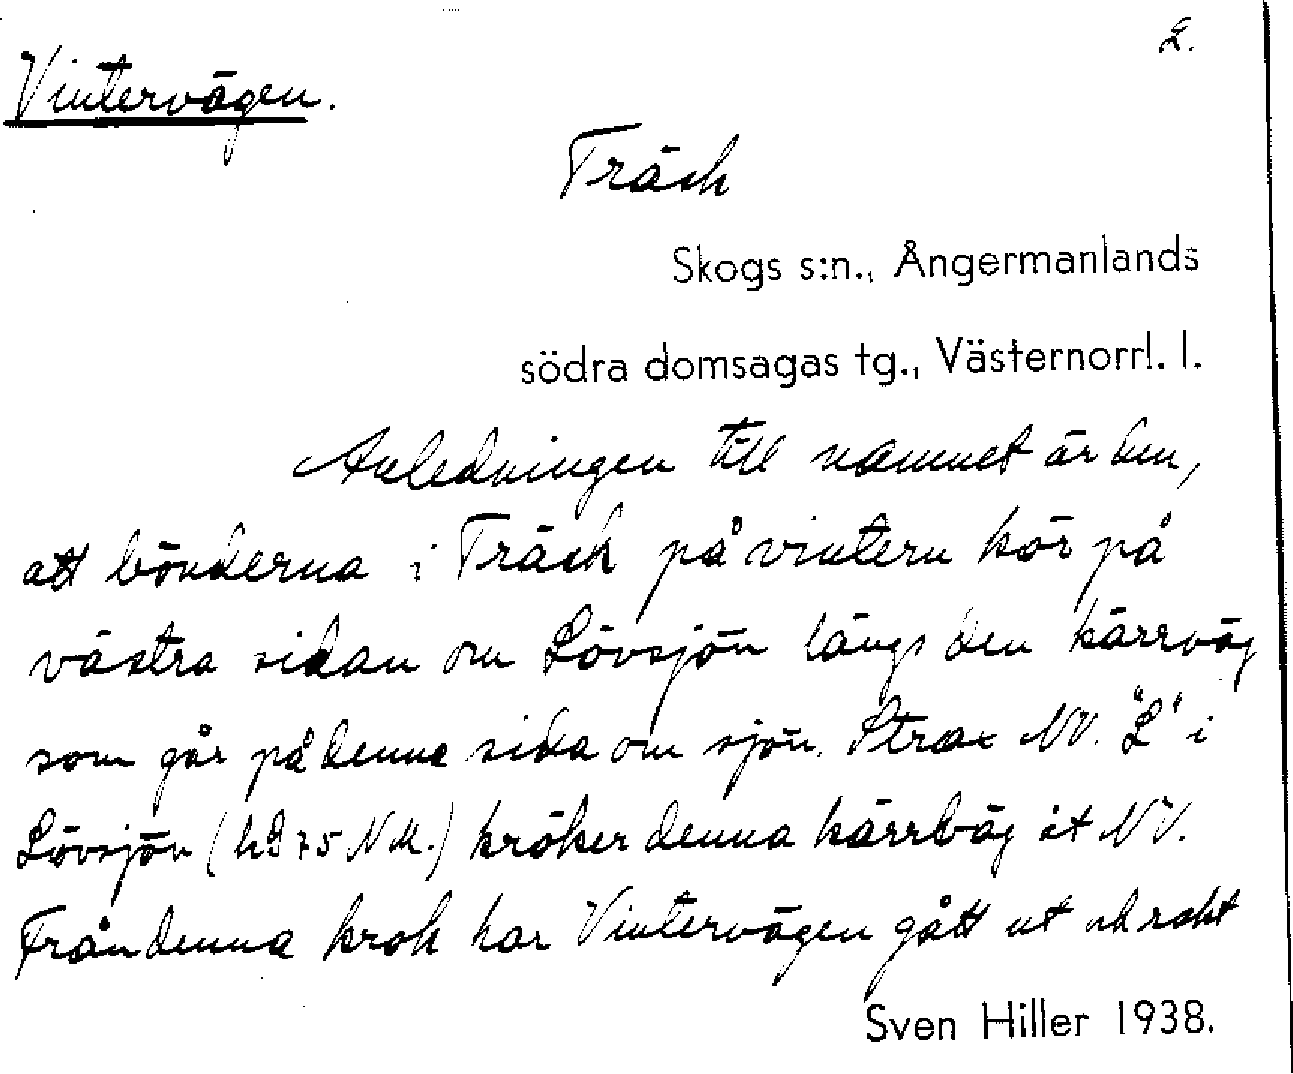 2.
Vintervägen.
Träsk
Skogs s:n., Ångermanlands
södra domsagas tg., Västernorrl. l.
Anledningen till namnet är den,
att bönderna i Träsk på vintern kör på
västra sidan om Lövsjön längs den kärrväg
som går på denna sida om sjön. Strax NV. "L" i
Lövsjön (hd 75 NM.) kröker denna kärrväg åt NV.
Från denna krok har Vintervägen gått ut rakt
Sven Hiller 1938.